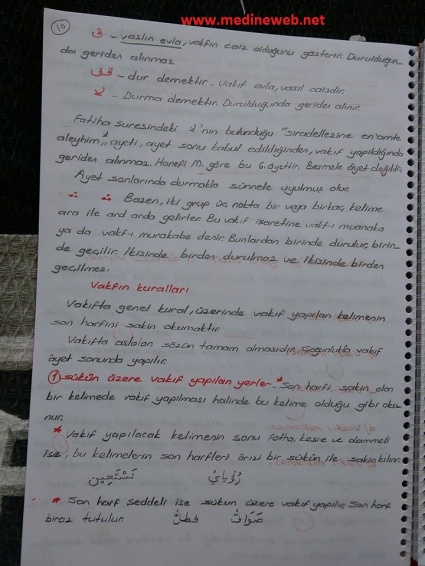 www.medineweb.net
10
ق - vaslın evla, vakfın caiz olduğunu gösterir. Durulduğun-
da geriden alınmaz
قف - dur demektir. Vakıf evla, vasıl caizdir.
لا - Durma demektir. Durulduğunda geriden alınır.
Fatiha suresindeki لا'nın bulunduğu "sıradellezine en'amte
aleyhim" âyeti, ayet sonu kabul edildiğinden, vakıf yapıldığında
geriden alınmaz. Hanefi M. göre bu 6. âyettir. Besmele âyet değildir.
Âyet sonlarında durmakla sünnete uyulmuş olur.
∴ ∴ Bazen, iki grup üç nokta bir veya birkaç kelime
ara ile ard arda gelirler. Bu vakıf işaretine vakf-ı muanaka
ya da vakf-ı murakabe denir. Bunlardan birinde durulur, birin-
de geçilir. İkisinde birden durulmaz ve ikisinde birden
geçilmez.
Vakfın kuralları
Vakıfta genel kural, üzerinde vakıf yapılan kelimenin
son harfini sakin okumaktır
Vakıfta aslolan sözün tamam olmasıdır. Çoğunlukla vakıf
âyet sonunda yapılır.
1) sükûn üzere vakıf yapılan yerler * Son harfi sakin olan
bir kelimede vakıf yapılması halinde bu kelime olduğu gibi oku-
nur.
* Vakıf yapılacak kelimenin sonu fetha, kesre ve dammeli
ise, bu kelimelerin son harfleri ârizi bir sükûn ile sakin kılınır.
رُؤْيَايْ نَسْتَعِين
* Son harf şeddeli ise sükun üzere vakıf yapılır. Son harf
biraz tutulur صَوَافّْ